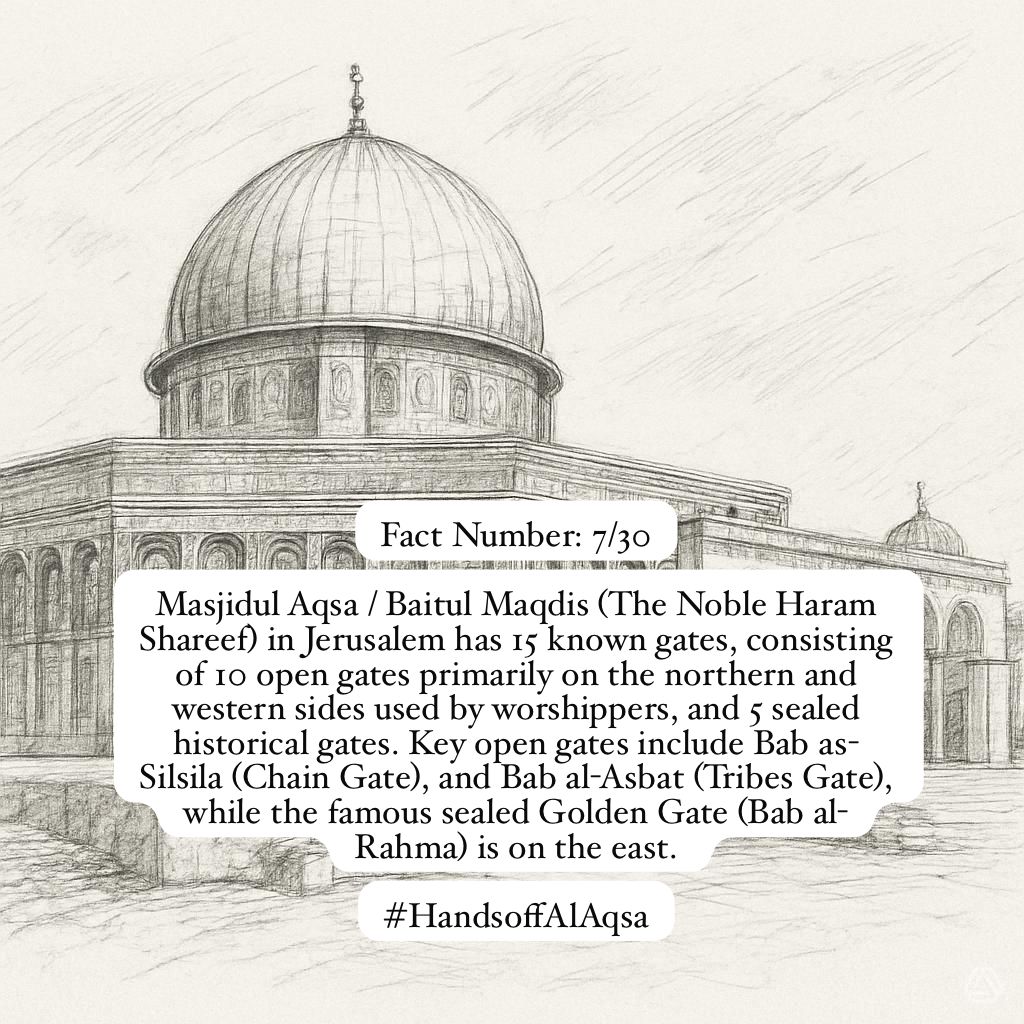 Fact Number: 7/30
Masjidul Aqsa / Baitul Maqdis (The Noble Haram
Shareef) in Jerusalem has 15 known gates, consisting
of 10 open gates primarily on the northern and
western sides used by worshippers, and 5 sealed
historical gates. Key open gates include Bab as-
Silsila (Chain Gate), and Bab al-Asbat (Tribes Gate),
while the famous sealed Golden Gate (Bab al-
Rahma) is on the east.
#HandsoffAlAqsa